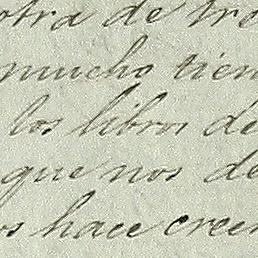 otra de tra
mucho tiem
los libros de
que nos de
os hace creer